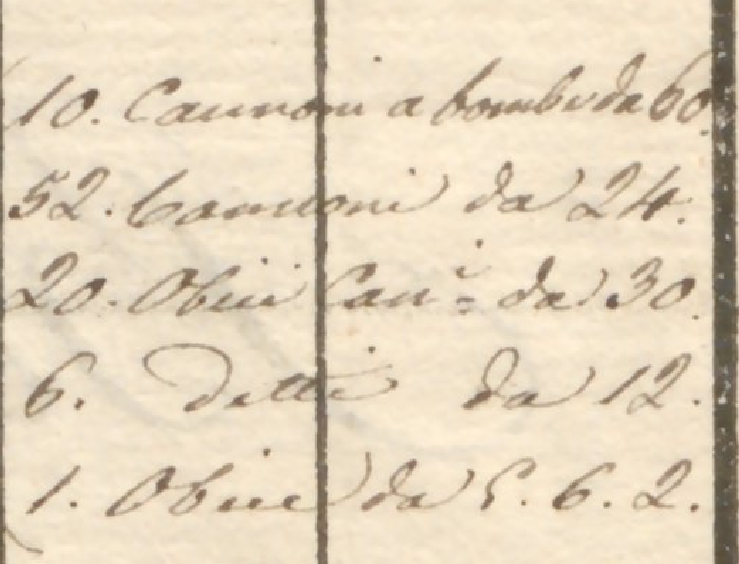 10. Cannoni a bombe da 60.
52. Cannoni da 24.
20. Obici Can.i da 30.
6. Detti da 12.
1. Obice da P. 6. 2.